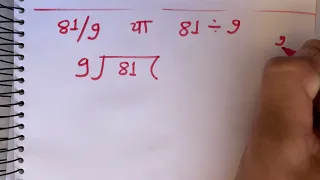 81/9 या 81 ÷ 9
9
9)81(